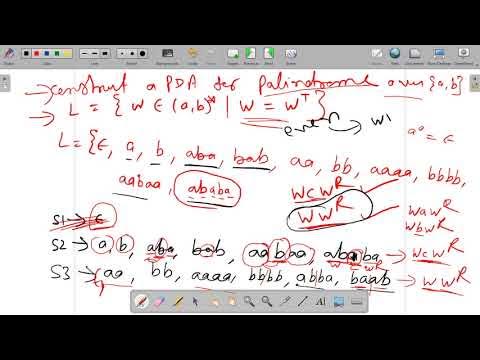 → construct a PDA for Palindrome over {a,b}
→ L = { W ∈ (a,b)* | W = Wᵀ }
even → W'
a⁰ = ϵ
L = { ϵ, a, b, aba, bab, aa, bb, aaaa, bbbb,
aabaa, ababa
WCWᴿ
WWᴿ
WaWᴿ
WbWᴿ
S1 → ϵ
S2 → a, b, aba, bab, aabaa, ababa, → WCWᴿ
W C Wᴿ
S3 → aa, bb, aaaa, bbbb, abba, baab → WWᴿ